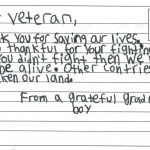 veteran,
you for saving our lives.
thankful for your fighting
you didn't fight then we
alive. Other contries
our land.
From a grateful grade
boy